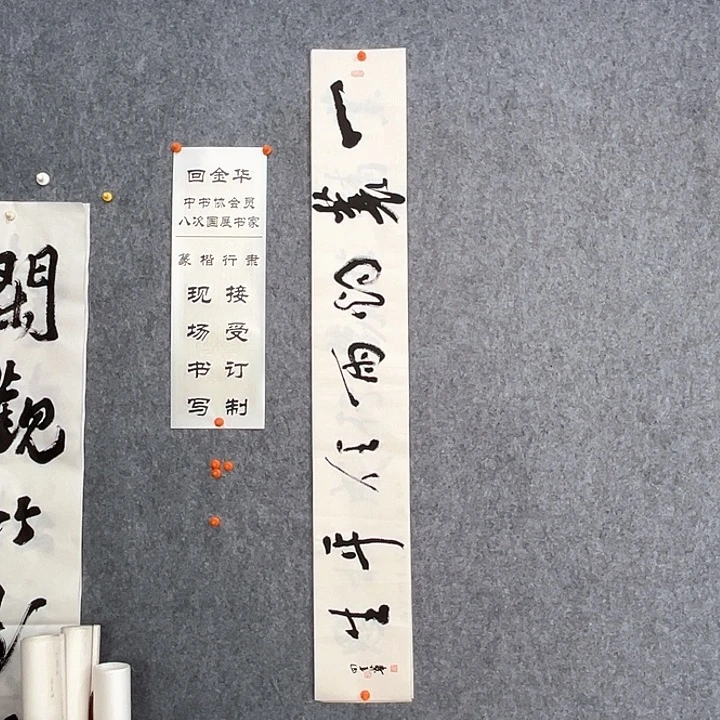 閑觀
回金华
中书协会员
八次国展书家
篆楷行隶
现场书写
接受订制
一蓑烟雨任平生